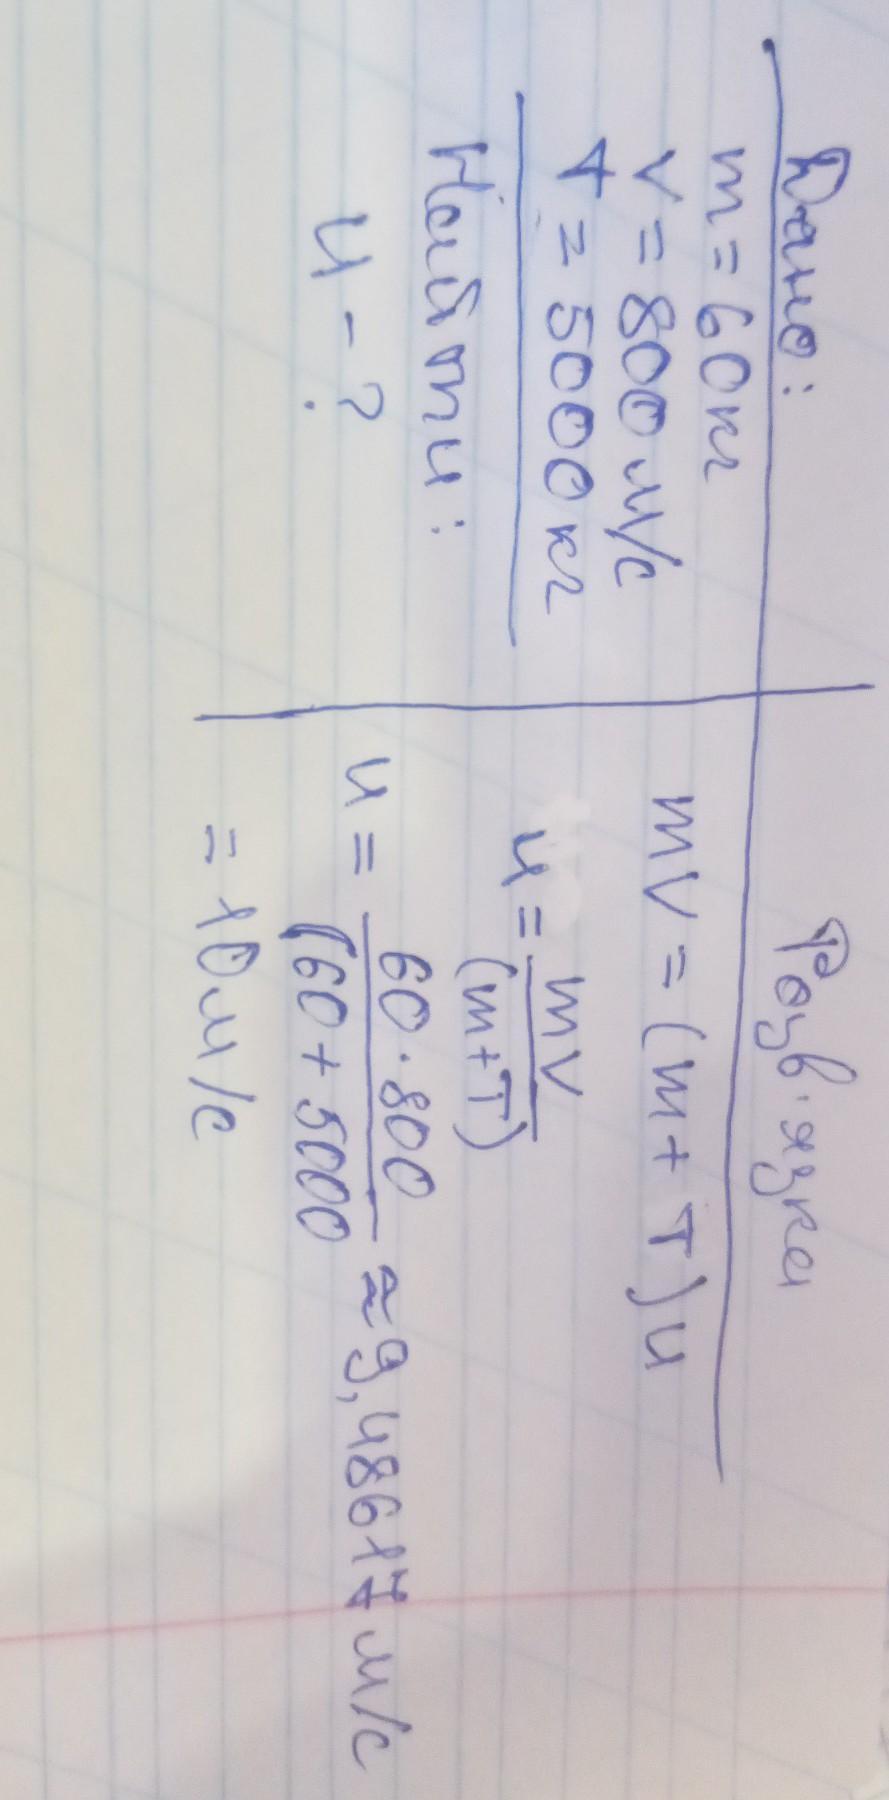 Дано:
m = 60 кг
v = 800 м/с
T = 5000 кг
Найти:
u - ?
Розв'язка
mv = (m + T) u
u = mv / (m+T)
u = 60 · 800 / (60 + 5000 ≈ 9,48617 м/с
= 10 м/с